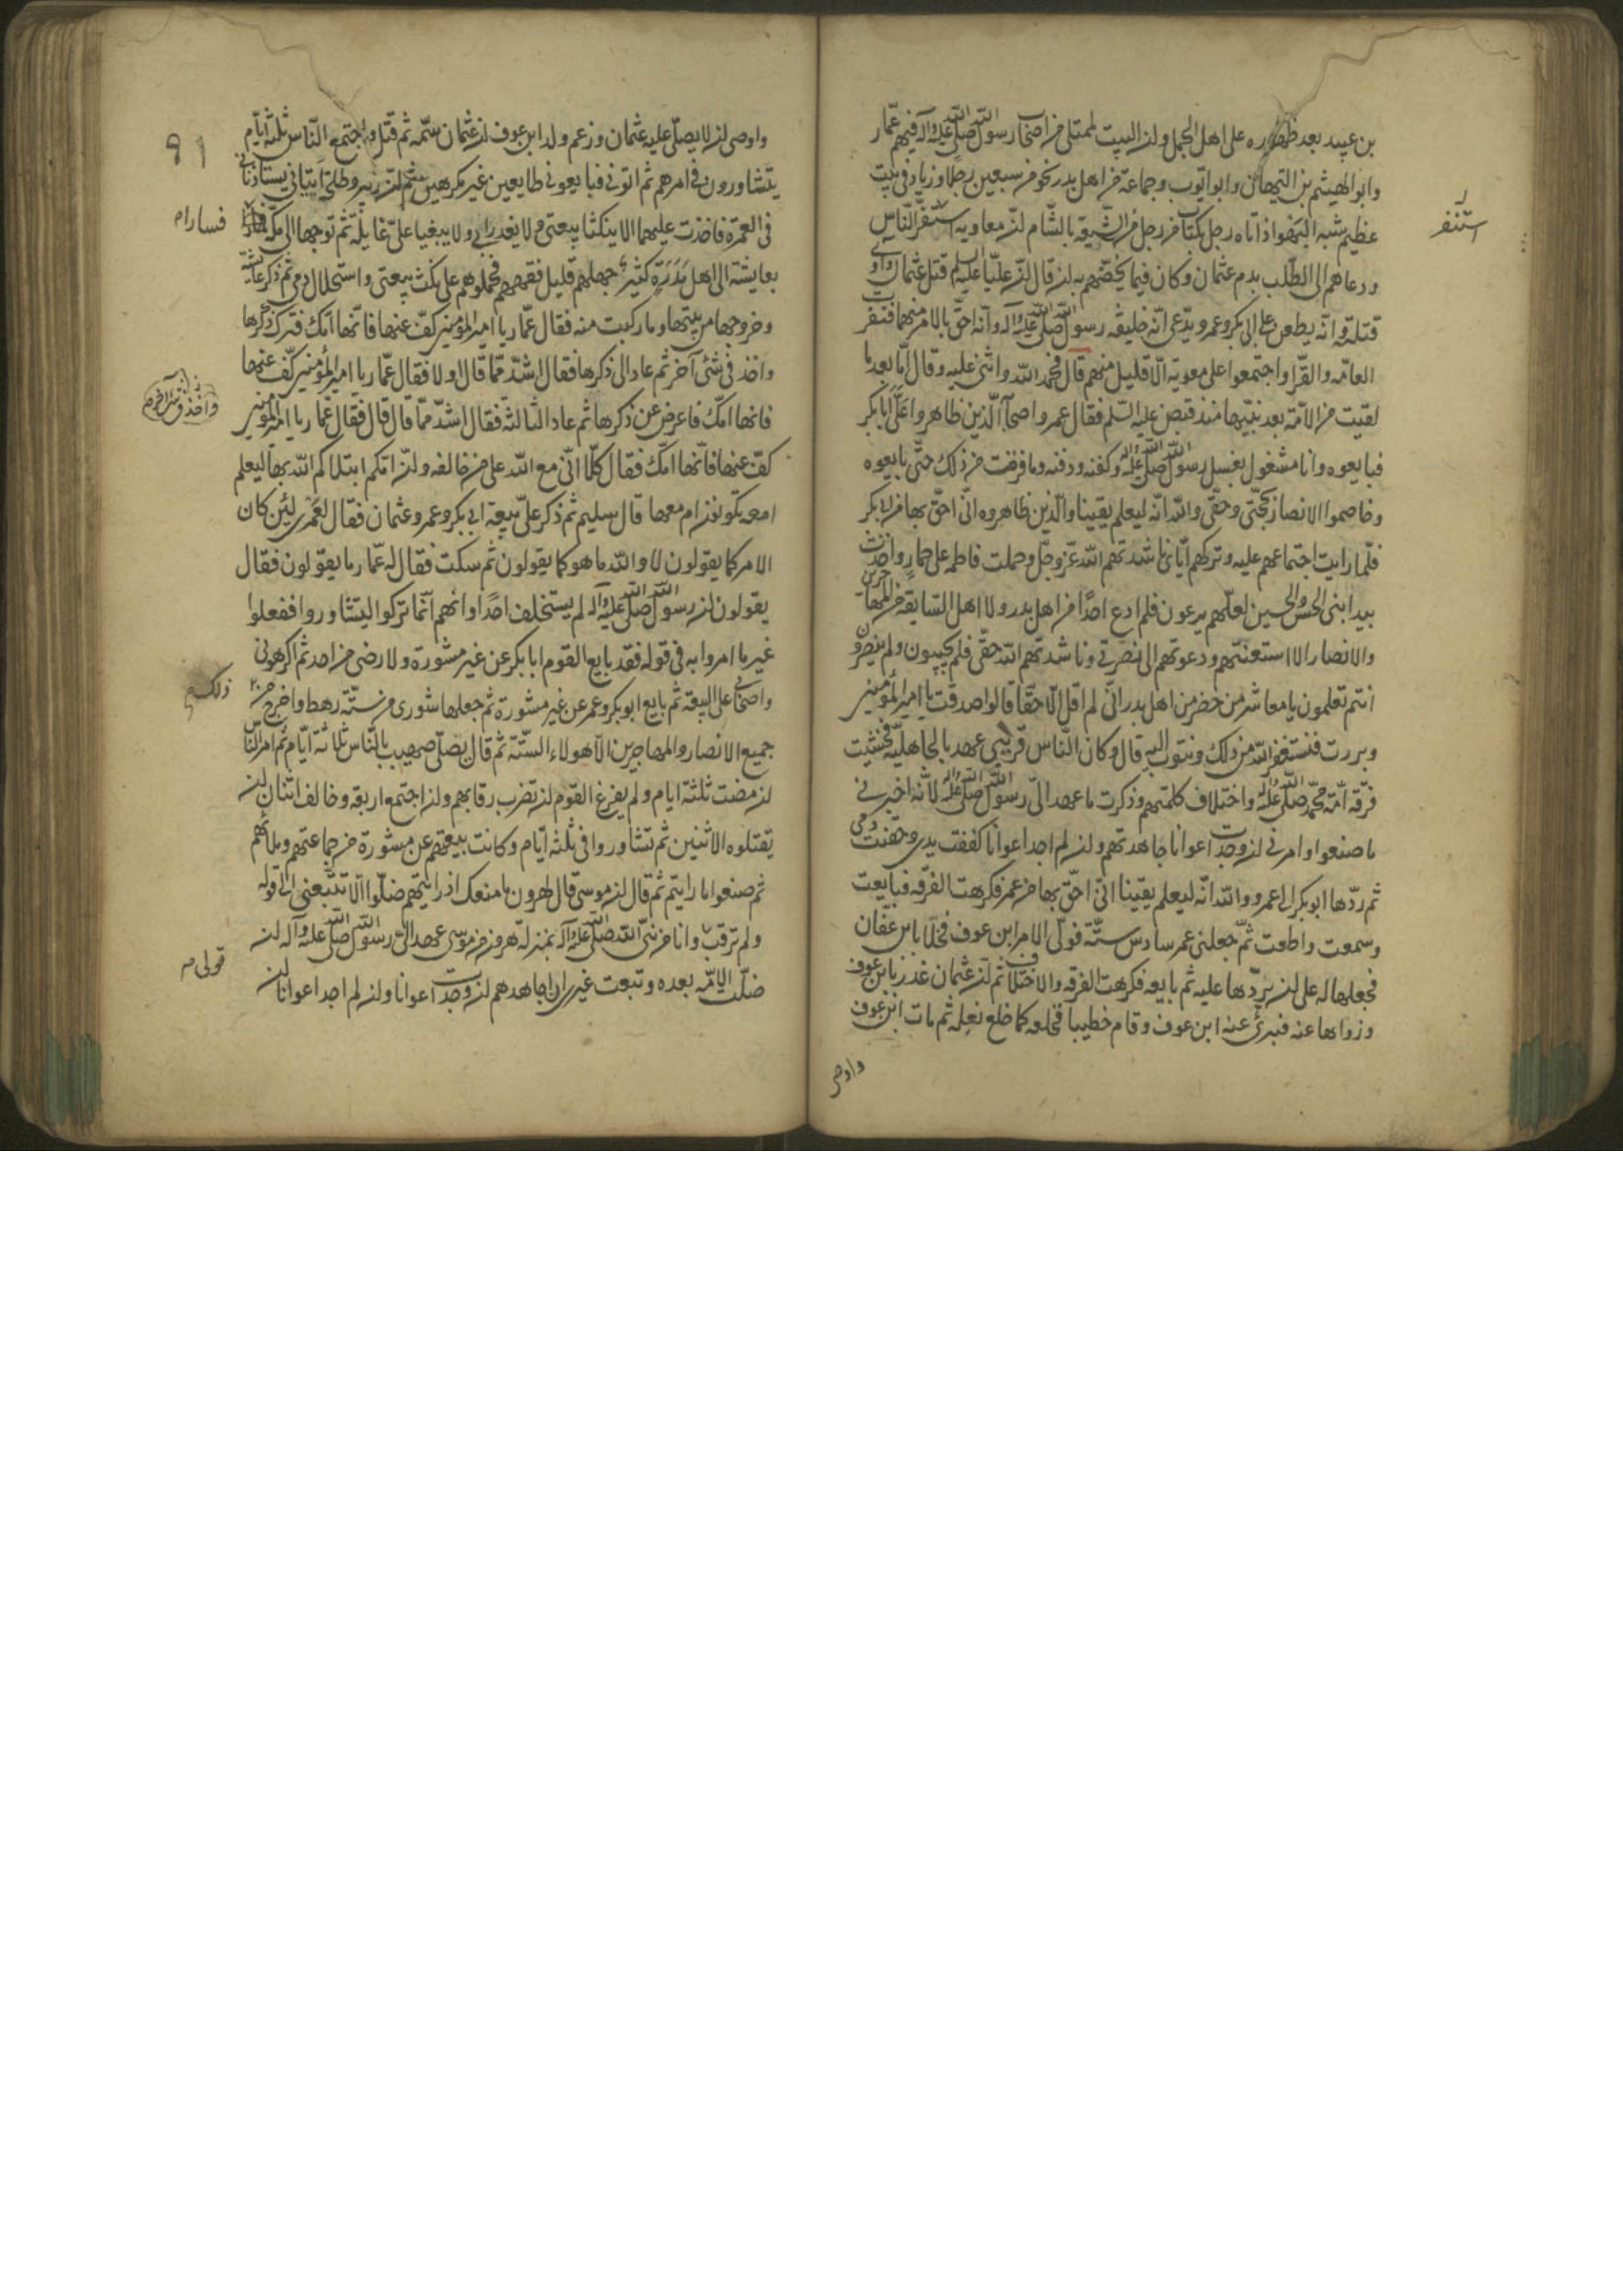 بن عبيد بعد ظهوره على اهل الجمل ولنه البيت لممتلى من اصحاب رسول الله صلى الله عليه وآله فيهم عمّار
وابو الهيثم بن التيهان وابو ايّوب وجماعة من اهل بدر نحو من سبعين رجلا وزياد في بيت
عظيم شبه البهو اذ اتاه رجل بكتاب من رجل من الشيعة بالشام لنّ معاوية استنفر النّاس
استنفر
ودعاهم الى الطّلب بدم عثمان وكان فيما يحضّهم به لنه قال لنّ عليّا عليه السلم قتل عثمان وآوى
قتلته وانّه يطعن على ابى بكر وعمر ويدّعى انّه خليفة رسول الله صلى الله عليه وآله وانّه احقّ بالامر منهما فنفرت
العامّه والقرّا واجتمعوا على معوية الّا قليل منهم قال فحمد الله واثنى عليه وقال امّا بعد ما
لقيت من الامّة بعد نبيّها منذ قبض عليه السّلم فقال عمر واصحابه الّذين ظاهروا علىّ ابا بكر
فبايعوه وانا مشغول بغسل رسول الله صلى الله عليه وآله وكفنه ودفنه وما فرغت من ذلك حتّى بايعوه
وخاصموا الانصار بحجّتى وحقّى والله انّه ليعلم يقينا والّذين ظاهروه انّى احقّ بها من ابى بكر
فلمّا رايت اجتماعهم عليه وتركهم ايّاى ناشدتهم الله عزّ وجلّ وحملت فاطمه على حمار واخذت
بيد ابنى الحسن والحسين لعلّهم يرعون فلم ادع احدًا من اهل بدر ولا اهل السّابقه من المهاجرين
والانصار الا استعنتهم ودعوتهم الى نصرتى وناشدتهم الله حقّى فلم يجيبون ولم ينصرون
انتم تعلمون يا معاشر من حضر من اهل بدر انّى لم اقل الّا حقّا قالوا صدقت يا امير المؤمنين
وبررت فنستغفر الله من ذلك ونتوب اليه قال وكان النّاس قريبى عهد بالجاهليّة فخشيت
فرقة امّة محمّد صلى الله عليه وآله واختلاف كلمتهم وذكرت ما عهد الىّ رسول الله صلى الله عليه وآله لانّه اخبرنى
ما صنعوا وامرنى لنه وجدت اعوانا جاهدتهم ولنه لم اجد اعوانا كففت يدى وحقنت دمى
ثم ردّها ابو بكر الى عمر ووالله انّه ليعلم يقينا انّى احقّ بها من عمر فكرهت الفرقه فبايعت
وسمعت واطعت ثمّ جعلنى عمر سادس ستّة فولّى الامر ابن عوف فخلّا بابن عفّان
فجعلها له على لنه يردّها عليه ثم بايعه فكرهت الفرقه والاختلاف ثم لنّ عثمان غدر بابن عوف
وزواها عنه فبرئ عنه ابن عوف وقام خطيبا فخلعه كما خلع نعله ثم مات ابن عوف
واوصى
٩١
واوصى لنه لا يصلّى عليه عثمان وزعم ولد ابن عوف لنّ عثمان سمّه ثم قتل واجتمع النّاس ثلثة ايّام
يتشاورون فى امرهم ثم اتونى فبايعونى طايعين غير مكرهين ثم لنّ زبير وطلحة اتيانى يستاذنانى
فى العمرة فاخذت عليهما الا ينكثا بيعتى ولا يغدرا بى ولا يبغيا علىّ غايلة ثم توجها الى مكّة فسارا
فسارا م
بعايشة الى اهل مدرة كثير جهلهم قليل فقههم فحملوهم على نكث بيعتى واستحلال دمى ثم ذكر عايشه
وخروجها من بيتها وما ركبت منه فقال عمّار يا امير المؤمنين كفّ عنها فانّها امّك فترك ذكرها
واخذ فى شئ آخر ثم عاد الى ذكرها فقال اشدّ ممّا قال اولا فقال عمّار يا امير المؤمنين كفّ عنها
فانها امّك فاعرض عن ذكرها ثم عاد الثالثة فقال اشدّ ممّا قال قال فقال عمّار يا امير المؤمنين
كفّ عنها فانّها امّك فقال كلّا انّى مع الله على من خالفه ولنّ امّكم ابتلاكم الله بها ليعلم
امعه تكونون ام معها قال سليم ثم ذكر علىّ بيعة ابى بكر وعمر وعثمان فقال لعمرى لئن كان
الامر كما يقولون لا والله ما هو كما يقولون ثم سكت فقال له عمّار ما يقولون فقال
يقولون لنّ رسول الله صلى الله عليه وآله لم يستخلف احدًا وانهم انّما تركوا ليتشاوروا ففعلوا
غير ما امروا به فى قوله فقد بايع القوم ابا بكر عن غير مشورة ولا رضى من احد ثم اكرهونى
واصحابى على البيعة ثم بايع ابو بكر وعمر عن غير مشورة ثم جعلها شورى من ستّة رهط واخرج من
ذلك م
جميع الانصار والمهاجرين الّا هولاء السّتّة ثم قال يصلّى صهيب بالنّاس ثلاثة ايّام ثم امر النّاس
لنه مضت ثلثة ايام ولم يفرغ القوم لنه تضرب رقابهم ولنه اجتمع اربعة وخالف اثنان لنه
يقتلوه الاثنين ثم تشاوروا فى ثلثة ايّام وكانت بيعتهم عن مشورة من جماعتهم وملائهم
ثم صنعوا ما رايتم ثم قال لنّ موسى قال لهرون ما منعك اذ رايتهم ضلّوا الّا تتّبعنى الى قوله
ولم ترقب وانا من نبىّ الله صلى الله عليه وآله بمنزلة هرون من موسى عهد الىّ رسول الله صلى الله عليه وآله لنه
قولى م
ضلّت الامّة بعده وتبعت غيرى ان اجاهدهم لنه وجدت اعوانا ولنه لم اجد اعوانا لنه